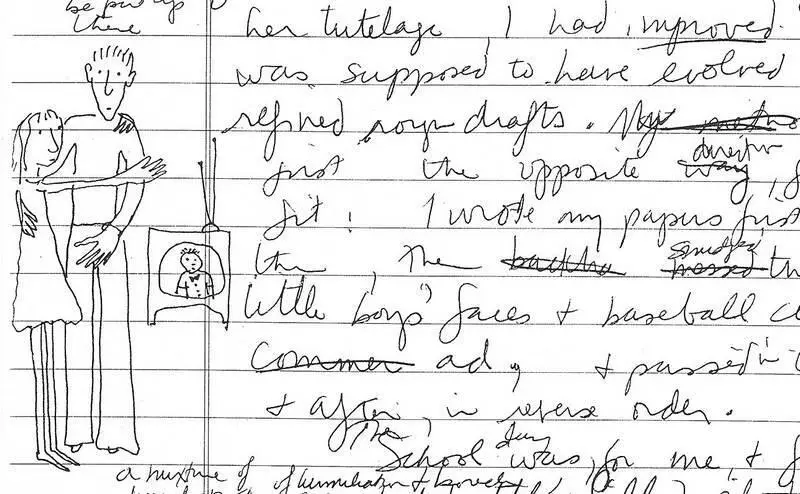 be put up
there
her tutelage, I had improved.
was supposed to have evolved
refined rough drafts. My
just the opposite way, director
fit! I wrote my papers first
then, the smudged messed th
little boys' faces + baseball c
Commer ad, + passed in
+ after, in reverse order.
The
School was, for me, +
a mixture of of humiliation +